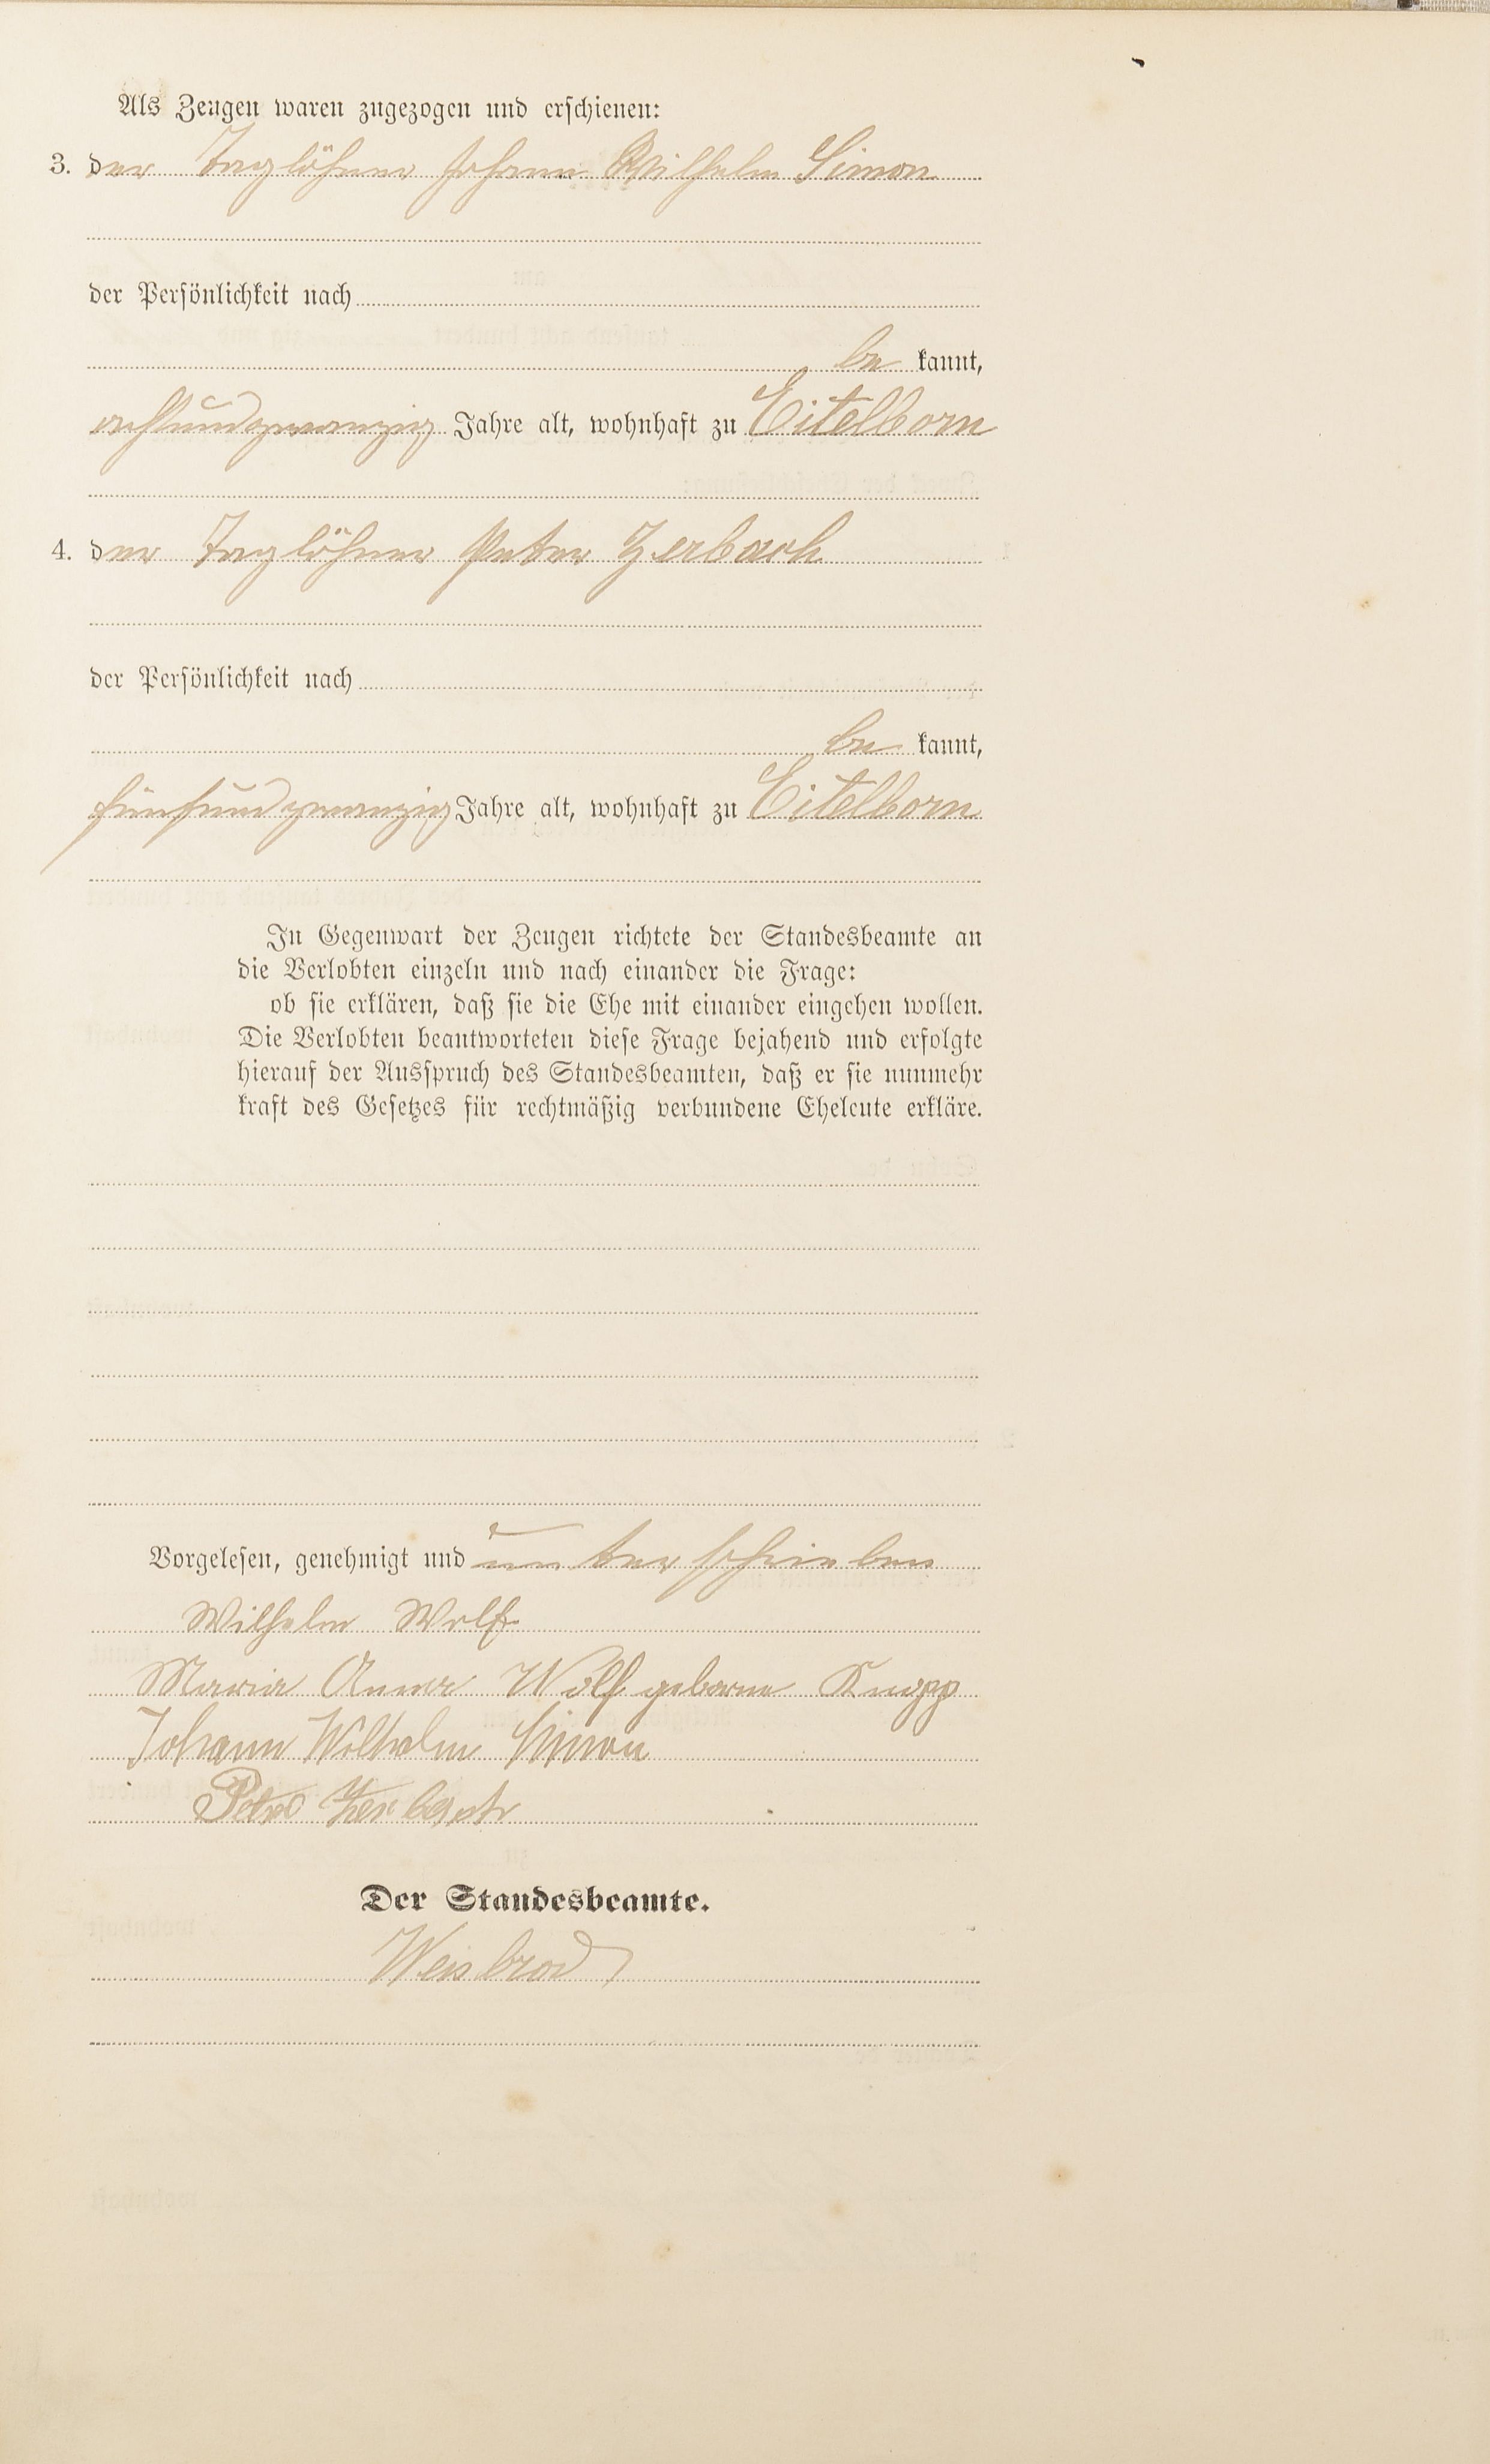 Als Zeugen waren zugezogen und erschienen:
3. der Taglöhner Johann Wilhelm Simon
der Persönlichkeit nach
be kannt,
achtundzwanzig Jahre alt, wohnhaft zu Eitelborn
4. der Taglöhner Peter Zerbach
der Persönlichkeit nach
be kannt,
fünfundzwanzig Jahre alt, wohnhaft zu Eitelborn
In Gegenwart der Zeugen richtete der Standesbeamte an
die Verlobten einzeln und nach einander die Frage:
ob sie erklären, daß sie die Ehe mit einander eingehen wollen.
Die Verlobten beantworteten diese Frage bejahend und erfolgte
hierauf der Ausspruch des Standesbeamten, daß er sie nunmehr
kraft des Gesetzes für rechtmäßig verbundene Eheleute erkläre.
Vorgelesen, genehmigt und unterschrieben
Wilhelm Wolf
Maria Anna Wolf geborne Knopp
Johann Wilhelm Simon
Peter Zerbach
Der Standesbeamte.
Weisbrod